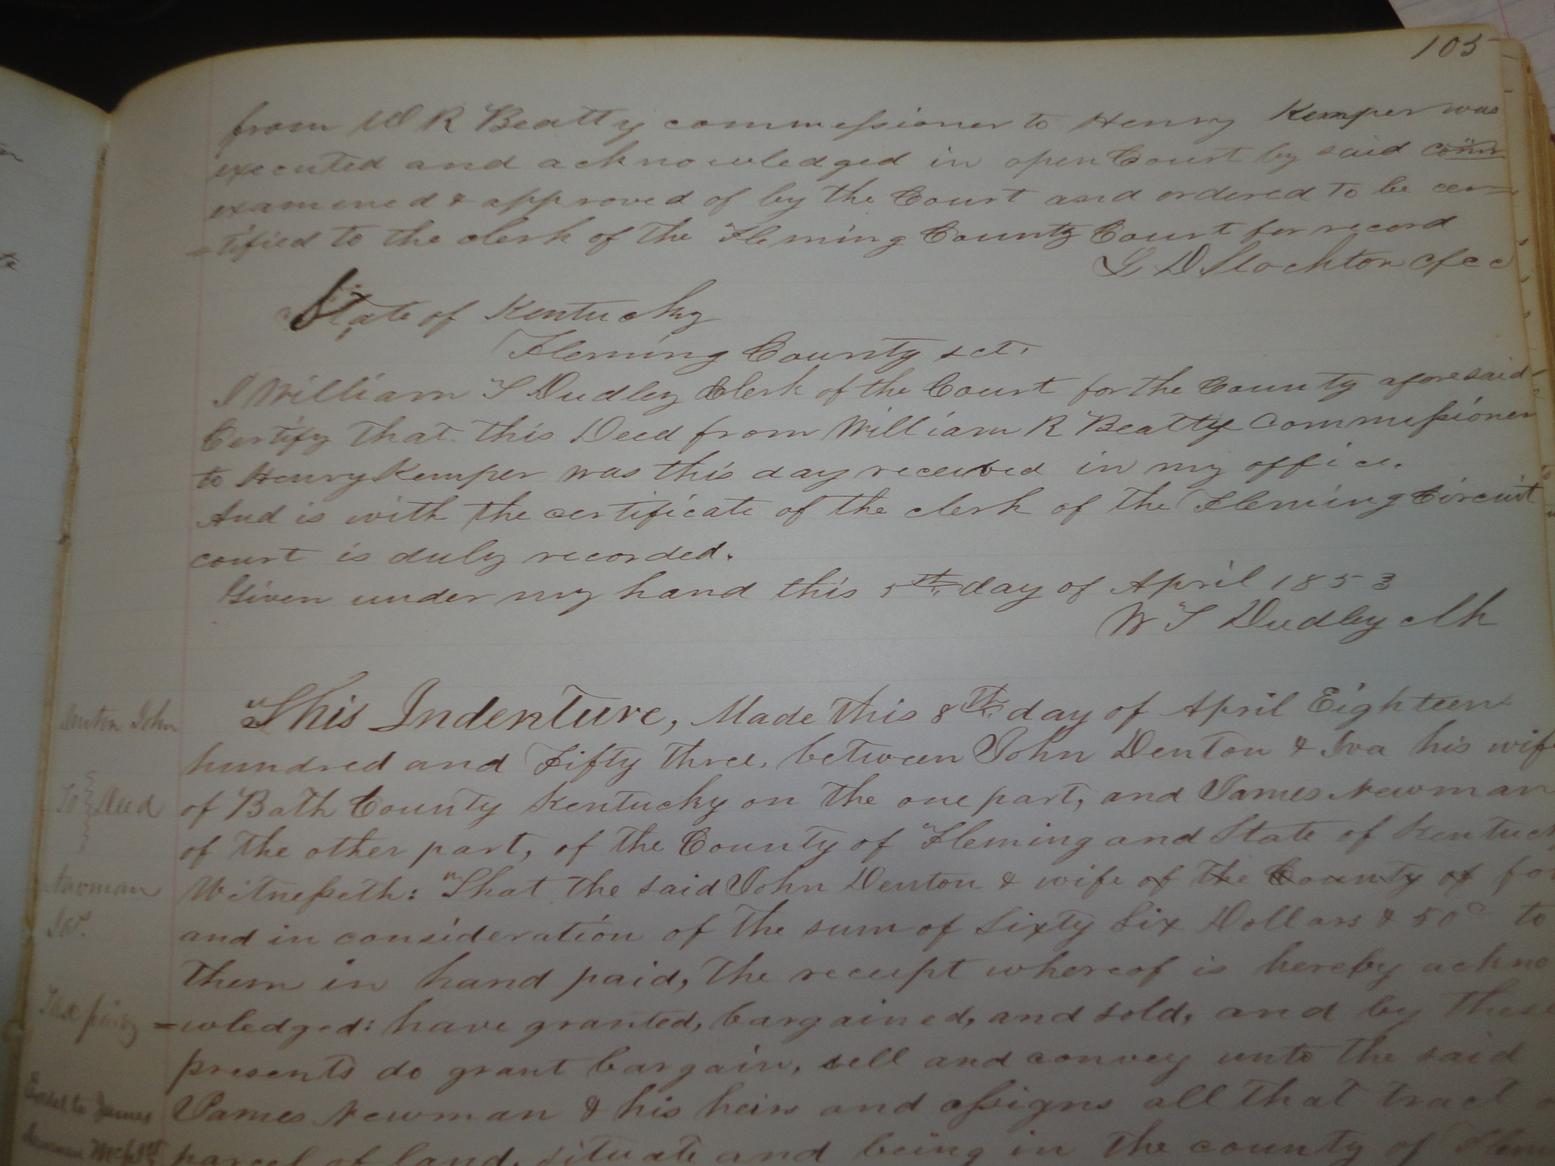 105
from W R Beatty commissioner to Henry Kemper was
executed and acknowledged in open Court by said com
examined & approved of by the Court and ordered to be cer-
=tified to the clerk of the Fleming County Court for record
L D Stockton cfcc
State of Kentucky
Fleming County sct.
I William T Dudley Clerk of the Court for the County aforesaid
Certify that this Deed from William R Beatty Commissioner
to Henry Kemper was this day received in my office.
And is with the certificate of the clerk of the Fleming Circuit
court is duly recorded.
Given under my hand this 5th day of April 1853
W T Dudley Clk
Denton John
To Deed
Newman
Jas.
Tax paid
"This Indenture, Made this 8th day of April Eighteen
hundred and Fifty three, between John Denton & Iva his wif
of Bath County Kentucky on the one part, and James Newman
of the other part, of the County of Fleming and State of Kentuck
Witnesseth: That the said John Denton & wife of the County of for
and in consideration of the sum of Sixty Six Dollars & 50c to
them in hand paid, the receipt whereof is hereby ackno
=wledged: have granted, bargained, and sold, and by these
presents do grant bargain, sell and convey unto the said
James Newman & his heirs and assigns all that tract o
parcel of land, situate and being in the county of Flem
to James